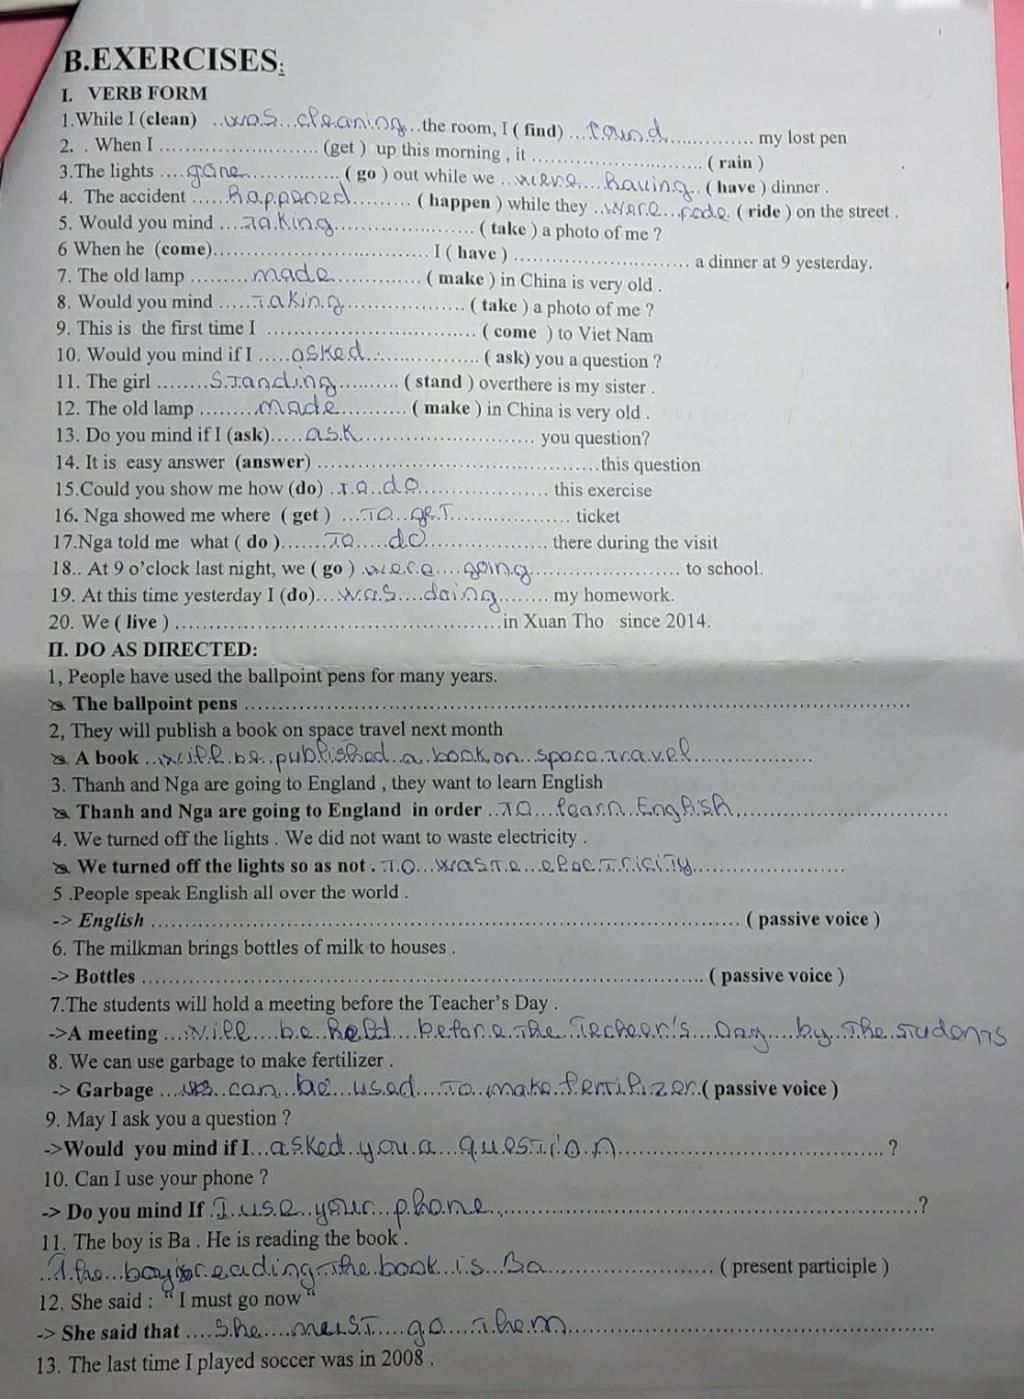 B.EXERCISES:
I. VERB FORM
1.While I (clean) ..was...cleaning...the room, I ( find) ...found.............. my lost pen
2. . When I ........................ (get ) up this morning , it .......................... ( rain )
3.The lights ....gone.............. ( go ) out while we ..were...having.. ( have ) dinner .
4. The accident .....happened......... ( happen ) while they ..were...rode. ( ride ) on the street .
5. Would you mind ....taking..................... ( take ) a photo of me ?
6 When he (come)................................. I ( have ) ........................... a dinner at 9 yesterday.
7. The old lamp .........made............. ( make ) in China is very old .
8. Would you mind .....taking................. ( take ) a photo of me ?
9. This is the first time I ................................ ( come ) to Viet Nam
10. Would you mind if I .....asked................. ( ask) you a question ?
11. The girl ........standing.......... ( stand ) overthere is my sister .
12. The old lamp ........made........... ( make ) in China is very old .
13. Do you mind if I (ask).....ask........................... you question?
14. It is easy answer (answer) ...........................................this question
15.Could you show me how (do) ..to..do.................... this exercise
16. Nga showed me where ( get ) ...to...get................... ticket
17.Nga told me what ( do ).......to.....do.................. there during the visit
18.. At 9 o'clock last night, we ( go ) .were....going...................... to school.
19. At this time yesterday I (do)...was....doing........ my homework.
20. We ( live ) ..................................................in Xuan Tho since 2014.
II. DO AS DIRECTED:
1, People have used the ballpoint pens for many years.
The ballpoint pens ....................................................................................................
2, They will publish a book on space travel next month
A book ..will.be..published..a..book.on..space.travel..................
3. Thanh and Nga are going to England , they want to learn English
Thanh and Nga are going to England in order ..to...learn.English...............................
4. We turned off the lights . We did not want to waste electricity .
We turned off the lights so as not .to...waste...electricity......................
5 .People speak English all over the world .
-> English ......................................................................................... ( passive voice )
6. The milkman brings bottles of milk to houses .
-> Bottles ..................................................................................... ( passive voice )
7.The students will hold a meeting before the Teacher's Day .
->A meeting ....will....be.held...before.the.Techeer's...Day....by..the.students
8. We can use garbage to make fertilizer .
-> Garbage ......can...be...used....to..make.fertilizer.( passive voice )
9. May I ask you a question ?
->Would you mind if I...asked..you.a...question........................................ ?
10. Can I use your phone ?
-> Do you mind If .I..use..your...phone...............................................................?
11. The boy is Ba . He is reading the book .
..The...boy..reading.the.book...is...Ba......................... ( present participle )
12. She said : “ I must go now “
-> She said that ....she....must....go....them..........................................................
13. The last time I played soccer was in 2008 .